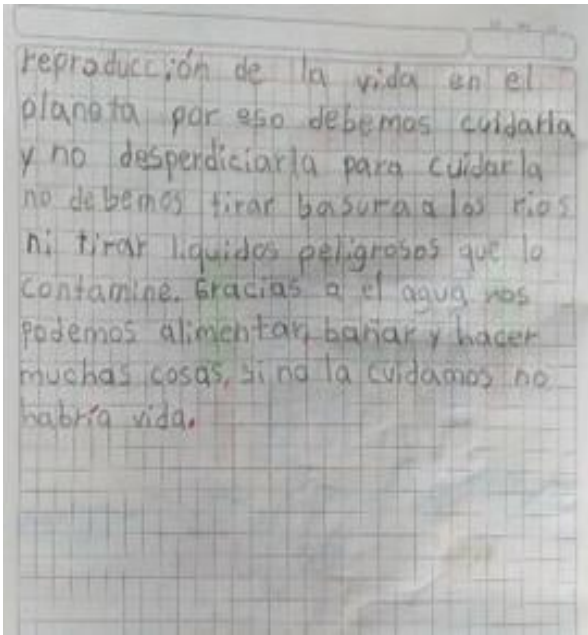 reproducción de la vida en el
planeta por eso debemos cuidarla
y no desperdiciarla para cuidarla
no debemos tirar basura a los rios
ni tirar liquidos peligrosos que lo
contamine. Gracias a el agua nos
podemos alimentar, bañar y hacer
muchas cosas, si no la cuidamos no
habría vida.